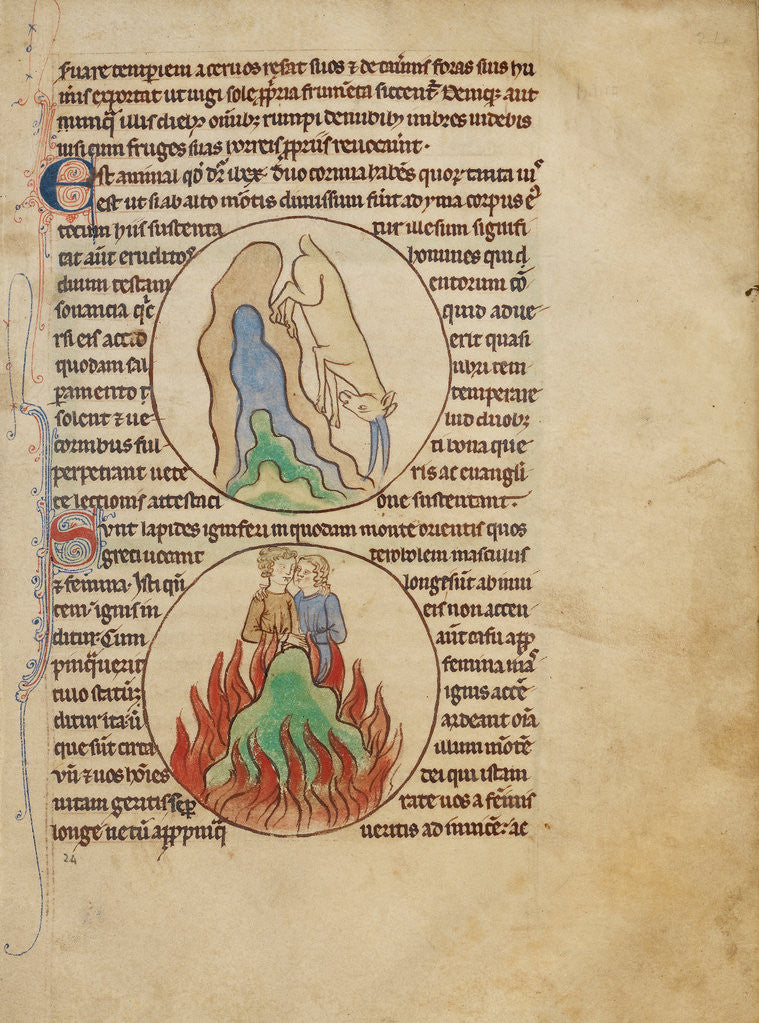 seruare temperiem aceruos reserat suos ⁊ de cauernis foras suis hu
meris exportat ut iugi sole ꝓpria frumēta siccent᷑. Deniqꝫ aut
nunq̄ illis diebꝫ omībꝫ rumpi de nubibꝫ imbres uidebis
nisi cum fruges suas horreis ꝓpriis reuocauint.
Est animal qd̄ dr̄ ibex. duo cornua habēs quoꝝ tanta uis
est ut si ab alto mōtis dimissum fuit ad yma corpus eiꝰ
totum hiis sustenta tur illesum signifi
cat aūt eruditos homines qui d
duum testam entorum cō
sonancia qc̄ quid aduer
rsi eis accid erit quasi
quodam sal ubri tem
peramento temperare
solent ⁊ ue lud duobꝫ
cornibus ful ti bona que
perpetrant uete ris ac euangli
ce lectionis attestaci one sustentant.
Sunt lapides igniferi in quodam monte orientis quos
greci uocant terobolem masculus
⁊ femina. Isti qn̄ longe sūt ab inui
cem ignis in eis non accen
ditur. Cum aūt casu app
pinq̄uerit femina mas
culo statim ignis accē
ditur ita ut ardeant oīa
que sūt circa illum mōtē
Vn̄ ⁊ uos hoīes dei qui istam
uitam geritis sepa rate uos a femīs
longe ne cū apppinq̄ ueritis ad inuicē ac
24